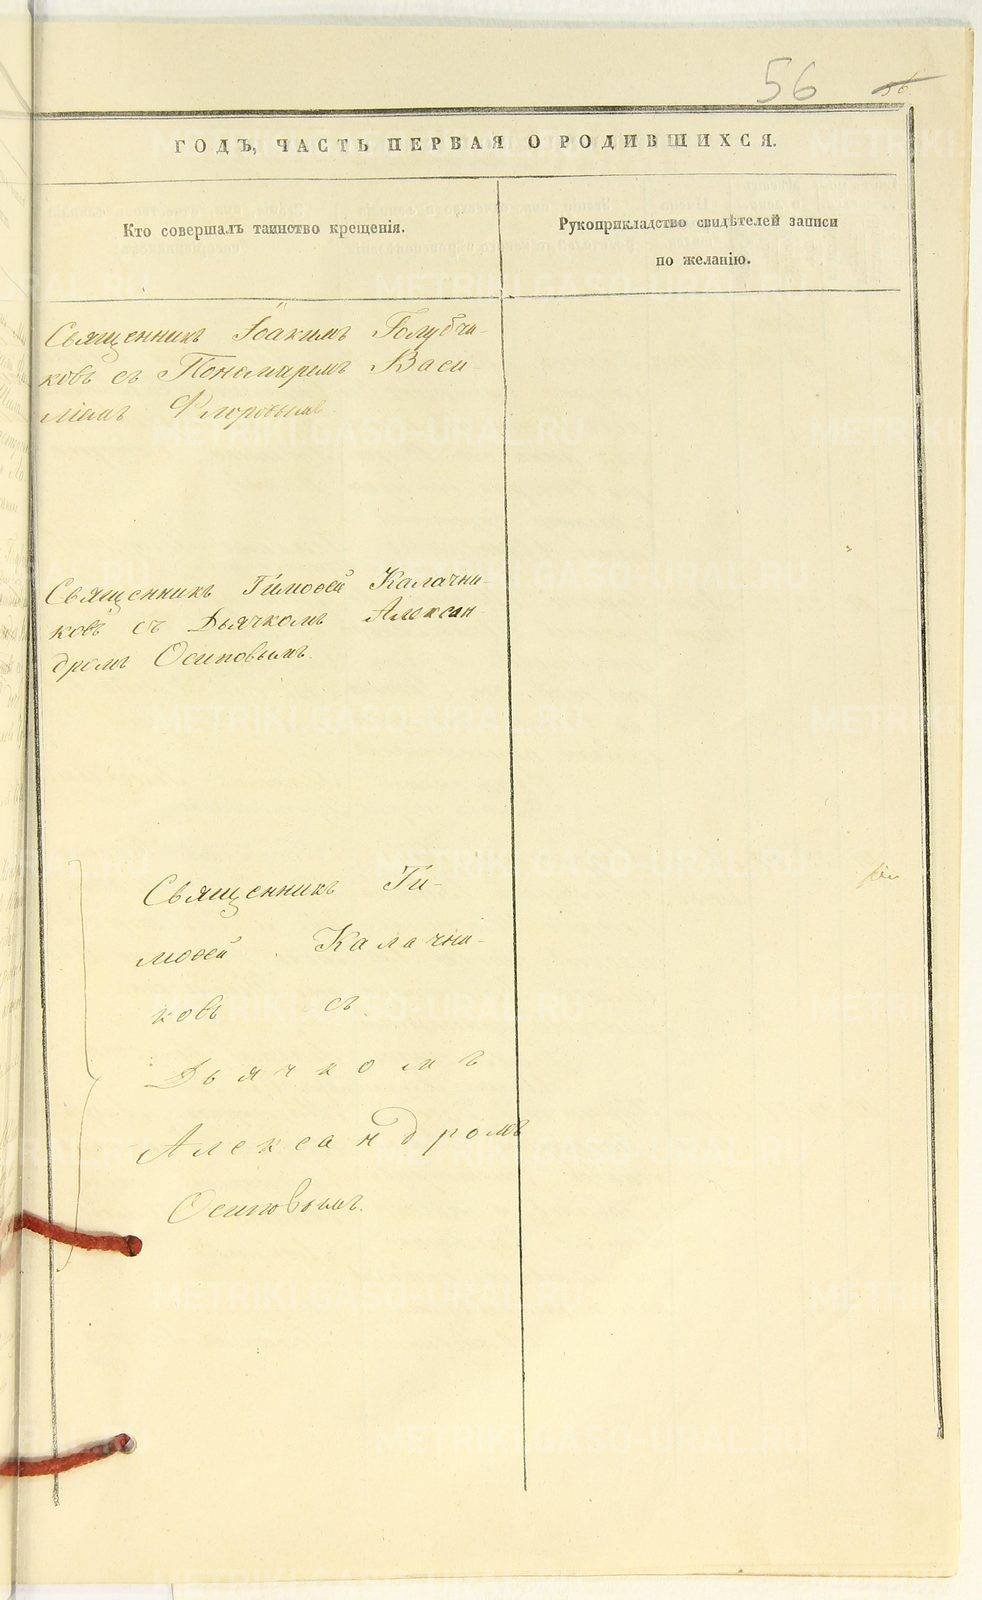 56
ГОДЪ, ЧАСТЬ ПЕРВАЯ О РОДИВШИХСЯ.
Кто совершалъ таинство крещенія.
Рукоприкладство свидѣтелей записи
по желанію.
Священникъ Іоакимъ Голубчи-
ковъ съ Пономаремъ Васи-
ліемъ
Священникъ Тимоѳей Калачни-
ковъ съ Дьячкомъ Алексан
дромъ Осиповымъ.
Священникъ Ти-
моѳей Калачни-
ковъ съ
Дьячкомъ
Александромъ
Осиповымъ.
METRIKI.GASO-URAL.RU